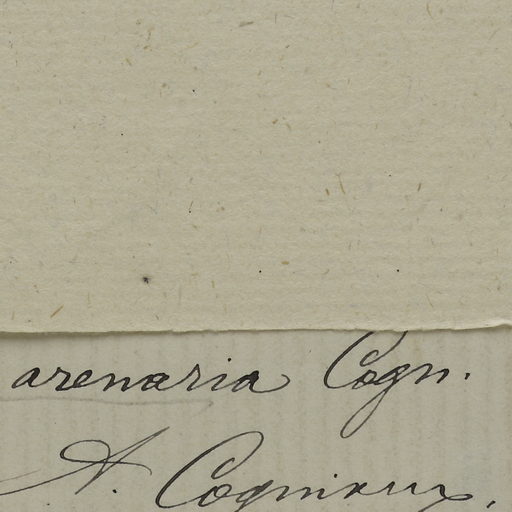 arenaria Cogn.
A. Cogniaux.